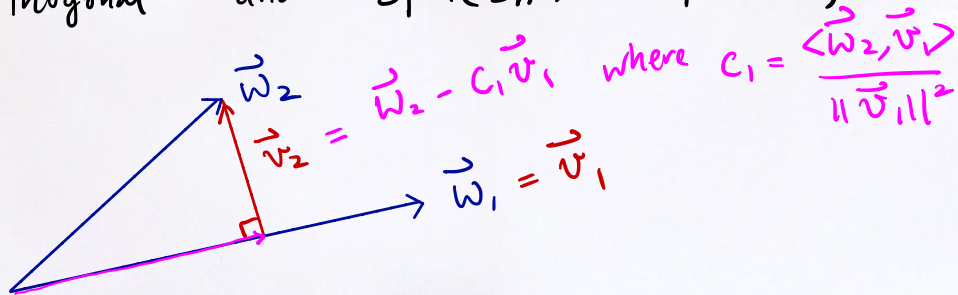 $\vec{w}_2$
$\vec{v}_2 = \vec{w}_2 - c_1\vec{v}_1$ where $c_1 = \frac{\langle\vec{w}_2, \vec{v}_1\rangle}{\|\vec{v}_1\|^2}$
$\vec{w}_1 = \vec{v}_1$